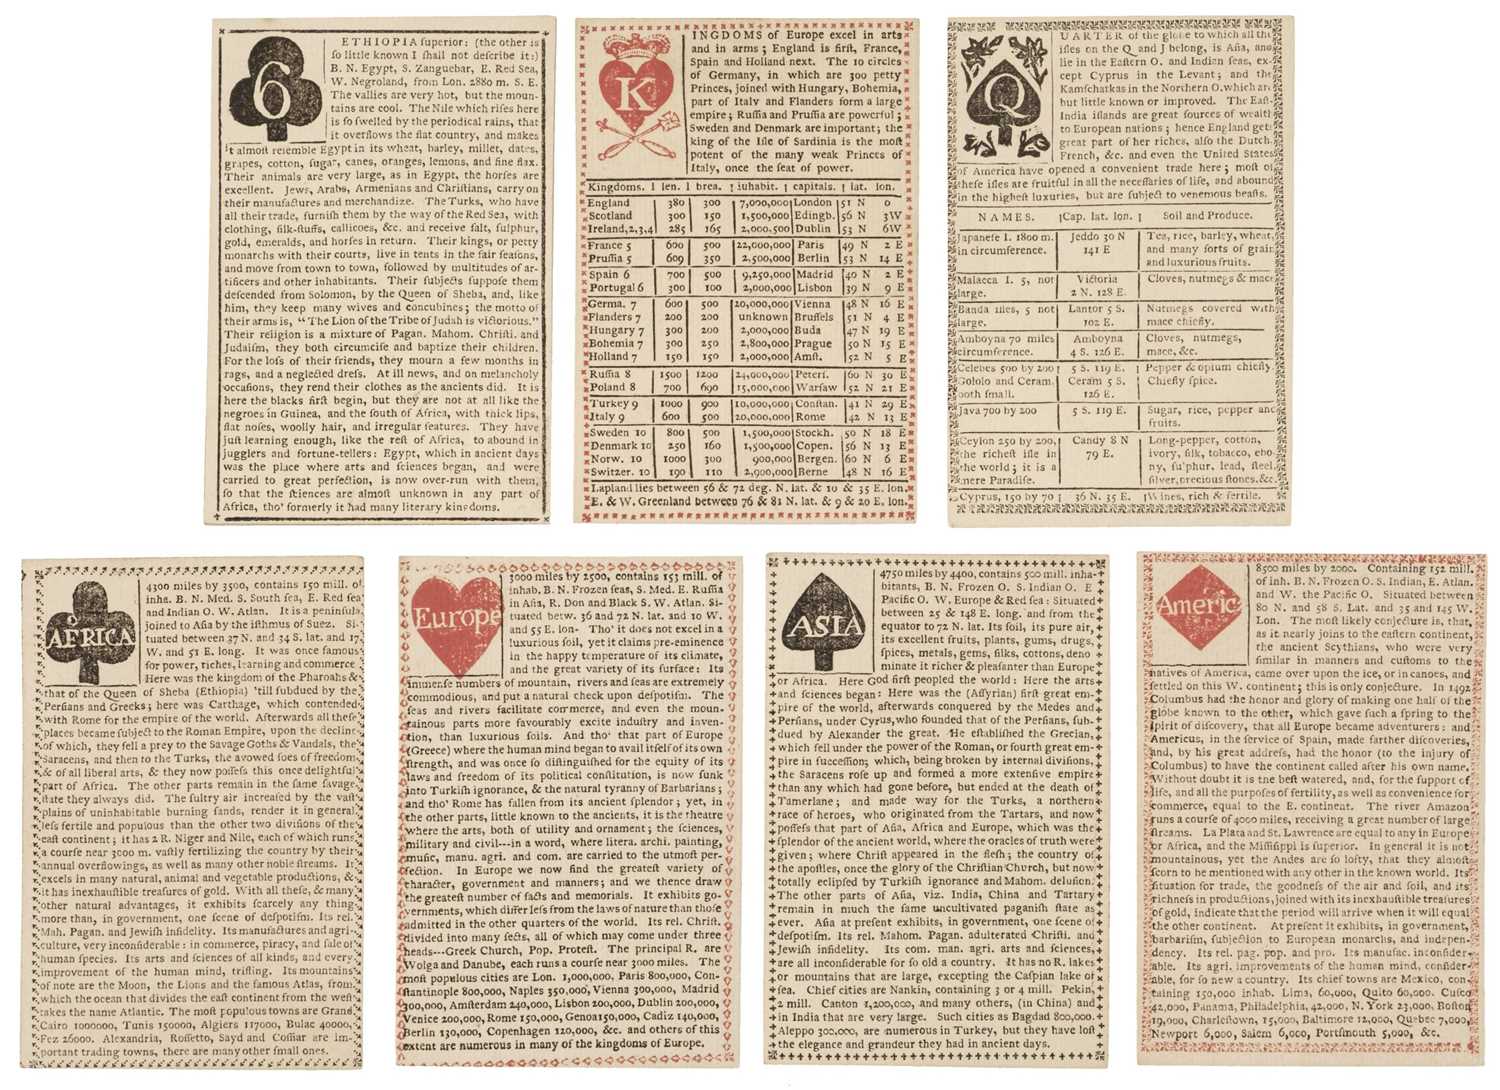 6
ETHIOPIA ſuperior: (the other is
ſo little known I ſhall not deſcribe it:)
B. N. Egypt, S. Zanguebar, E. Red Sea,
W. Negroland, from Lon. 2880 m. S. E.
The vallies are very hot, but the moun-
tains are cool. The Nile which riſes here
is ſo ſwelled by the periodical rains, that
it overflows the flat country, and makes
it almoſt reſemble Egypt in its wheat, barley, millet, dates,
grapes, cotton, ſugar, canes, oranges, lemons, and fine flax.
Their animals are very large, as in Egypt, the horſes are
excellent. Jews, Arabs, Armenians and Chriſtians, carry on
their manufactures and merchandize. The Turks, who have
all their trade, furniſh them by the way of the Red Sea, with
clothing, ſilk-ſtuffs, callicoes, &c. and receive ſalt, ſulphur,
gold, emeralds, and horſes in return. Their kings, or petty
monarchs with their courts, live in tents in the fair ſeaſons,
and move from town to town, followed by multitudes of ar-
tificers and other inhabitants. Their ſubjects ſuppoſe them
deſcended from Solomon, by the Queen of Sheba, and, like
him, they keep many wives and concubines; the motto of
their arms is, "The Lion of the Tribe of Judah is victorious."
Their religion is a mixture of Pagan. Mahom. Chriſti. and
Judaiſm, they both circumciſe and baptize their children.
For the loſs of their friends, they mourn a few months in
rags, and a neglected dreſs. At ill news, and on melancholy
occaſions, they rend their clothes as the ancients did. It is
here the blacks firſt begin, but they are not at all like the
negroes in Guinea, and the ſouth of Africa, with thick lips,
flat noſes, woolly hair, and irregular features. They have
juſt learning enough, like the reſt of Africa, to abound in
jugglers and fortune-tellers: Egypt, which in ancient days
was the place where arts and ſciences began, and were
carried to great perfection, is now over-run with them,
ſo that the ſciences are almoſt unknown in any part of
Africa, tho' formerly it had many literary kingdoms.
K
INGDOMS of Europe excel in arts
and in arms; England is firſt, France,
Spain and Holland next. The 10 circles
of Germany, in which are 300 petty
Princes, joined with Hungary, Bohemia,
part of Italy and Flanders form a large
empire; Ruſſia and Pruſſia are powerful;
Sweden and Denmark are important; the
king of the Iſle of Sardinia is the moſt
potent of the many weak Princes of
Italy, once the ſeat of power.
Kingdoms. len. brea. iuhabit. capitals. lat. lon.
England 380 300 7,000,000 London 51 N 0
Scotland 300 150 1,500,000 Edingb. 56 N 3W
Ireland,2,3,4 285 165 2,000,500 Dublin 53 N 6W
France 5 600 500 22,000,000 Paris 49 N 2 E
Pruſſia 5 609 350 2,500,000 Berlin 53 N 14 E
Spain 6 700 500 9,250,000 Madrid 40 N 2 E
Portugal 6 300 100 2,000,000 Lisbon 39 N 9 E
Germa. 7 600 500 20,000,000 Vienna 48 N 16 E
Flanders 7 200 200 unknown Bruſſels 51 N 4 E
Hungary 7 300 200 2,000,000 Buda 47 N 19 E
Bohemia 7 300 250 2,800,000 Prague 50 N 15 E
Holland 7 150 150 2,000,000 Amſt. 52 N 5 E
Ruſſia 8 1500 1200 24,000,000 Peterſ. 60 N 30 E
Poland 8 700 690 15,000,000 Warſaw 52 N 21 E
Turkey 9 1000 900 10,000,000 Conſtan. 41 N 29 E
Italy 9 600 500 20,000,000 Rome 42 N 13 E
Sweden 10 800 500 1,500,000 Stockh. 50 N 18 E
Denmark 10 250 160 1,500,000 Copen. 56 N 13 E
Norw. 10 1000 300 900,000 Bergen. 60 N 6 E
Switzer. 10 190 110 2,900,000 Berne 48 N 16 E
Lapland lies between 56 & 72 deg. N. lat. & 10 & 35 E. lon.
E. & W. Greenland between 76 & 81 N. lat. & 9 & 20 E. lon.
Q
UARTER of the globe to which all the
iſles on the Q and J belong, is Aſia, and
lie in the Eaſtern O. and Indian ſeas, ex-
cept Cyprus in the Levant; and the
Kamſchatkas in the Northern O. which are
but little known or improved. The Eaſt-
India iſlands are great ſources of wealth
to European nations; hence England gets
great part of her riches, alſo the Dutch,
French, &c. and even the United States
of America have opened a convenient trade here; moſt of
theſe iſles are fruitful in all the neceſſaries of life, and abound
in the higheſt luxuries, but are ſubject to venemous beaſts.
NAMES. Cap. lat. lon. Soil and Produce.
Japaneſe I. 1800 m. Jeddo 30 N Tea, rice, barley, wheat,
in circumference. 141 E and many ſorts of grain
and luxurious fruits.
Malacca I. 5, not Victoria Cloves, nutmegs & mace
large. 2 N. 128 E.
Banda iſles, 5 not Lantor 5 S. Nutmegs covered with
large. 102 E. mace chiefly.
Amboyna 70 miles Amboyna Cloves, nutmegs,
circumference. 4 S. 126 E. mace, &c.
Celebes 500 by 200 5 S. 119 E. Pepper & opium chiefly.
Gololo and Ceram, Ceram 5 S. Chiefly ſpice.
both ſmall. 126 E.
Java 700 by 200 5 S. 119 E. Sugar, rice, pepper and
fruits.
Ceylon 250 by 200, Candy 8 N Long-pepper, cotton,
the richeſt iſle in 79 E. ivory, ſilk, tobacco, ebo-
the world; it is a ny, ſulphur, lead, ſteel,
mere Paradiſe. ſilver, precious ſtones, &c.
Cyprus, 150 by 70 36 N. 35 E. Wines, rich & fertile.
AFRICA
4300 miles by 3500, contains 150 mill. of
inha. B. N. Med. S. South ſea, E. Red ſea
and Indian O. W. Atlan. It is a peninſula,
joined to Aſia by the iſthmus of Suez. Si-
tuated between 37 N. and 34 S. lat. and 17
W. and 51 E. long. It was once famous
for power, riches, learning and commerce
Here was the kingdom of the Pharoahs &
that of the Queen of Sheba (Ethiopia) 'till ſubdued by the
Perſians and Greeks; here was Carthage, which contended
with Rome for the empire of the world. Afterwards all theſe
places became ſubject to the Roman Empire, upon the decline
of which, they fell a prey to the Savage Goths & Vandals, the
Saracens, and then to the Turks, the avowed foes of freedom
& of all liberal arts, & they now poſſeſs this once delightful
part of Africa. The other parts remain in the ſame ſavage
ſtate they always did. The ſultry air increaſed by the vaſt
plains of uninhabitable burning ſands, render it in general
leſs fertile and populous than the other two diviſions of the
eaſt continent; it has 2 R. Niger and Nile, each of which runs
a courſe near 3000 m. vaſtly fertilizing the country by their
annual overflowings, as well as many other noble ſtreams. It
excels in many natural, animal and vegetable productions, &
it has inexhauſtible treaſures of gold. With all theſe, & many
other natural advantages, it exhibits ſcarcely any thing
more than, in government, one ſcene of deſpotiſm. Its rel.
Mah. Pagan. and Jewiſh infidelity. Its manufactures and agri-
culture, very inconſiderable: in commerce, piracy, and ſale of
human ſpecies. Its arts and ſciences of all kinds, and every
improvement of the human mind, trifling. Its mountains
of note are the Moon, the Lions and the famous Atlas, from
which the ocean that divides the eaſt continent from the weſt
takes the name Atlantic. The moſt populous towns are Grand
Cairo 1000000, Tunis 150000, Algiers 117000, Bulac 40000,
Fez 26000. Alexandria, Roſſetto, Sayd and Coſſiar are im-
portant trading towns, there are many other ſmall ones.
Europe
3000 miles by 2500, contains 153 mill. of
inhab. B. N. Frozen ſeas, S. Med. E. Ruſſia
in Aſia, R. Don and Black S. W. Atlan. Si-
tuated betw. 36 and 72 N. lat. and 10 W.
and 55 E. lon- Tho' it does not excel in a
luxurious ſoil, yet it claims pre-eminence
in the happy temperature of its climate,
and the great variety of its ſurface: Its
immenſe numbers of mountain, rivers and ſeas are extremely
commodious, and put a natural check upon deſpotiſm. The
ſeas and rivers facilitate commerce, and even the moun-
tainous parts more favourably excite induſtry and inven-
tion, than luxurious ſoils. And tho' that part of Europe
(Greece) where the human mind began to avail itſelf of its own
ſtrength, and was once ſo diſtinguiſhed for the equity of its
laws and freedom of its political conſtitution, is now ſunk
into Turkiſh ignorance, & the natural tyranny of Barbarians;
and tho' Rome has fallen from its ancient ſplendor; yet, in
the other parts, little known to the ancients, it is the theatre
where the arts, both of utility and ornament; the ſciences,
military and civil---in a word, where litera. archi. painting,
muſic, manu. agri. and com. are carried to the utmoſt per-
fection. In Europe we now find the greateſt variety of
character, government and manners; and we thence draw
the greateſt number of facts and memorials. It exhibits go-
vernments, which differ leſs from the laws of nature than thoſe
admitted in the other quarters of the world. Its rel. Chriſt.
divided into many ſects, all of which may come under three
heads---Greek Church, Pop. Proteſt. The principal R. are
Wolga and Danube, each runs a courſe near 3000 miles. The
moſt populous cities are Lon. 1,000,000, Paris 800,000, Con-
ſtantinople 800,000, Naples 350,000, Vienna 300,000, Madrid
300,000, Amſterdam 240,000, Lisbon 200,000, Dublin 200,000,
Venice 200,000, Rome 150,000, Genoa 150,000, Cadiz 140,000,
Berlin 130,000, Copenhagen 120,000, &c. and others of this
extent are numerous in many of the kingdoms of Europe.
ASIA
4750 miles by 4400, contains 500 mill. inha-
bitants, B. N. Frozen O. S. Indian O. E
Pacific O. W. Europe & Red ſea: Situated
between 25 & 148 E. long. and from the
equator to 72 N. lat. Its ſoil, its pure air,
its excellent fruits, plants, gums, drugs,
ſpices, metals, gems, ſilks, cottons, deno
minate it richer & pleaſanter than Europe
or Africa. Here God firſt peopled the world: Here the arts
and ſciences began: Here was the (Aſſyrian) firſt great em-
pire of the world, afterwards conquered by the Medes and
Perſians, under Cyrus, who founded that of the Perſians, ſub-
dued by Alexander the great. He eſtabliſhed the Grecian,
which fell under the power of the Roman, or fourth great em-
pire in ſucceſſion; which, being broken by internal diviſions,
the Saracens roſe up and formed a more extenſive empire
than any which had gone before, but ended at the death of
Tamerlane; and made way for the Turks, a northern
race of heroes, who originated from the Tartars, and now
poſſeſs that part of Aſia, Africa and Europe, which was the
ſplendor of the ancient world, where the oracles of truth were
given; where Chriſt appeared in the fleſh; the country of
the apoſtles, once the glory of the Chriſtian Church, but now
totally eclipſed by Turkiſh ignorance and Mahom. deluſion.
The other parts of Aſia, viz. India, China and Tartary
remain in much the ſame uncultivated paganiſh ſtate as
ever. Aſia at preſent exhibits, in government, one ſcene of
deſpotiſm. Its rel. Mahom. Pagan. adulterated Chriſti. and
Jewiſh infidelity. Its com. man. agri. arts and ſciences,
are all inconſiderable for ſo old a country. It has no R. lakes
or mountains that are large, excepting the Caſpian lake or
ſea. Chief cities are Nankin, containing 3 or 4 mill. Pekin,
2 mill. Canton 1,200,000, and many others, (in China) and
in India that are very large. Such cities as Bagdad 800,000.
Aleppo 300,000, are numerous in Turkey, but they have loſt
the elegance and grandeur they had in ancient days.
Americ
8500 miles by 2000. Containing 152 mill.
of inh. B. N. Frozen O. S. Indian, E. Atlan.
and W. the Pacific O. Situated between
80 N. and 58 S. Lat. and 35 and 145 W.
Lon. The moſt likely conjecture is, that,
as it nearly joins to the eaſtern continent,
the ancient Scythians, who were very
ſimilar in manners and cuſtoms to the
natives of America, came over upon the ice, or in canoes, and
ſettled on this W. continent; this is only conjecture. In 1492
Columbus had the honor and glory of making one half of the
globe known to the other, which gave ſuch a ſpring to the
ſpirit of diſcovery, that all Europe became adventurers: and
Americus, in the ſervice of Spain, made farther diſcoveries,
and, by his great addreſs, had the honor (to the injury of
Columbus) to have the continent called after his own name.
Without doubt it is the beſt watered, and, for the ſupport of
life, and all the purpoſes of fertility, as well as convenience for
commerce, equal to the E. continent. The river Amazon
runs a courſe of 4000 miles, receiving a great number of large
ſtreams. La Plata and St. Lawrence are equal to any in Europe
or Africa, and the Miſſiſippi is ſuperior. In general it is not
mountainous, yet the Andes are ſo lofty, that they almoſt
ſcorn to be mentioned with any other in the known world. Its
ſituation for trade, the goodneſs of the air and ſoil, and its
richneſs in productions, joined with its inexhauſtible treaſures
of gold, indicate that the period will arrive when it will equal
the other continent. At preſent it exhibits, in government,
barbariſm, ſubjection to European monarchs, and indepen-
dency. Its rel. pag. pop. and pro. Its manufac. inconſider-
able. Its agri. improvements of the human mind, conſider-
able, for ſo new a country. Its chief towns are Mexico, con-
taining 150,000 inhab. Lima, 60,000, Quito 60,000. Cuſco
42,000, Panama, Philadelphia, 42,000, N. York 23,000, Boſton
19,000, Charleſtown, 15,000, Baltimore 12,000, Quebec 7,000,
Newport 6,000, Salem 6,000, Portſmouth 5,000, &c.